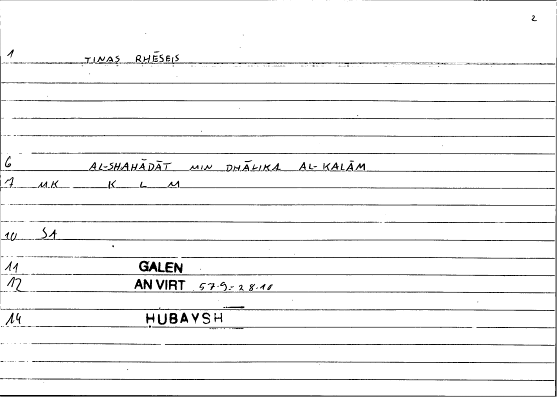 2
1 TINAS RHĒSEIS
6 AL-SHAHĀDĀT MIN DHĀLIKA AL-KALĀM
7 MK K L M
10 SA
11 GALEN
12 AN VIRT 57.9-28.18
14 HUBAYSH